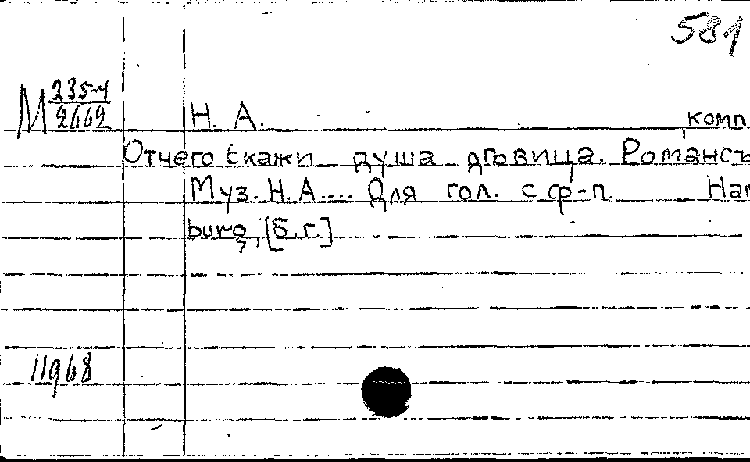 581
М 235-4
2662
Н. А. комп.
Отчего скажи душа дѣвица. Романсъ
Муз. Н.А.... Для гол. с ф-п. Ham
burg, [Б.г.]
11968